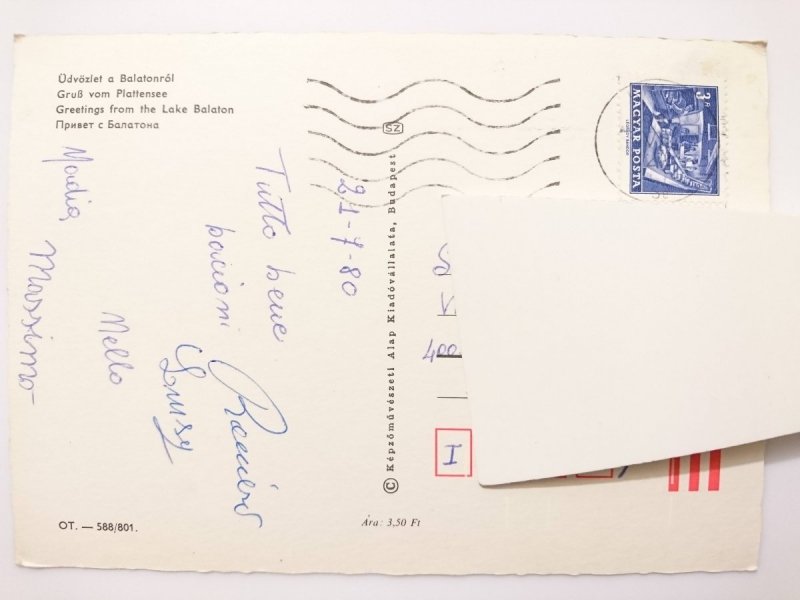 Üdvözlet a Balatonról
Gruß vom Plattensee
Greetings from the Lake Balaton
Привет с Балатона
21-7-80
Tutto bene
bacioni
Ramiro
Giusy
Nello
Nadia
Massimo
© Képzőművészeti Alap Kiadóvállalata, Budapest
SZ
3 Ft
MAGYAR POSTA
400
I
OT. — 588/801.
Ára: 3,50 Ft